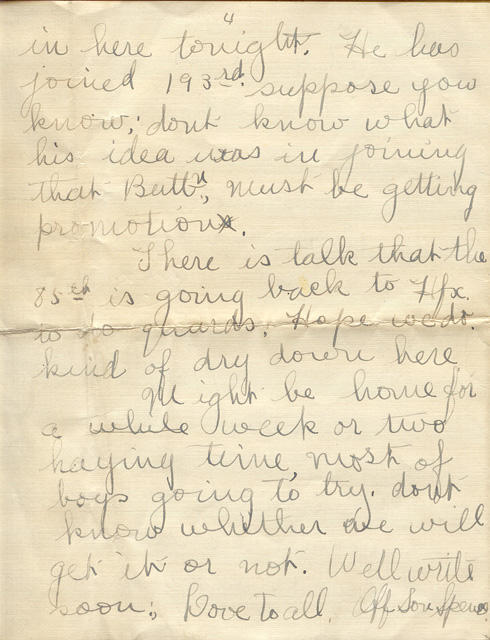 4
in here tonight. He has
joined 193rd. suppose you
know, dont know what
his idea was in joining
that Battn, must be getting
promotion.
There is talk that the
85th is going back to Hfx.
to do guards. Hope we do.
kind of dry down here
Might be home for
a while week or two
haying time, most of
boys going to try. dont
know whether we will
get it or not. Well write
soon. Love to all. Aff Son Spence